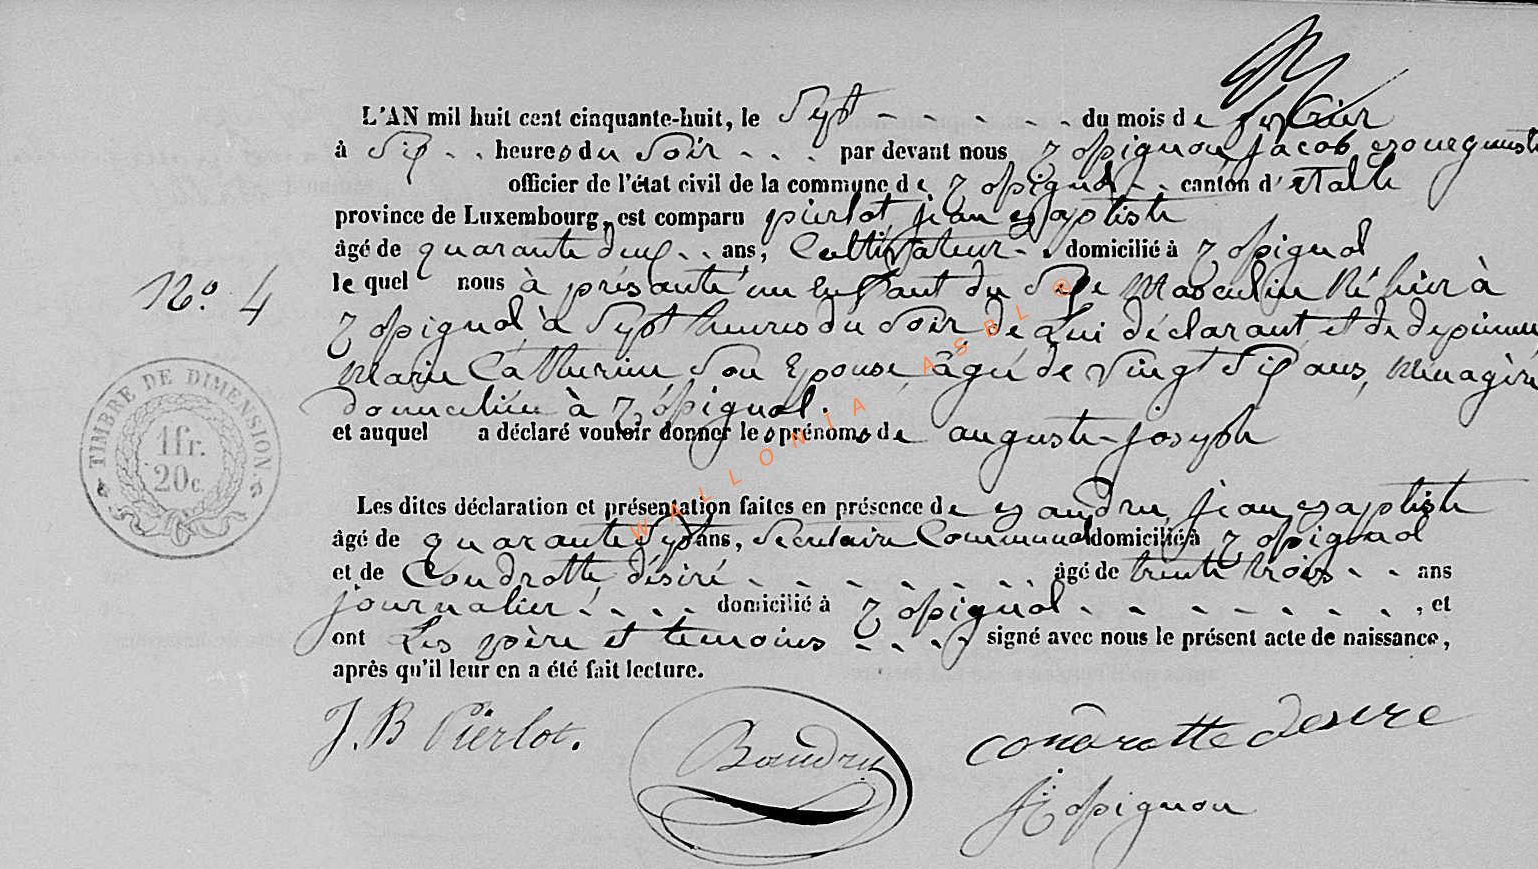 L'AN mil huit cent cinquante-huit, le Sept - - - - - - du mois de fevrier
à Six - - heures du Soir - - - par devant nous Jacob
officier de l'état civil de la commune de - - canton d'Etalle
province de Luxembourg, est comparu pierlot, jean Baptiste
âgé de quarante deux - - ans, Cultivateur - - domicilié à
le quel nous à présenté un Enfant du Sexe Masculin Né hier à
à Sept heures du Soir, de Lui déclarant et de
Marie Catherine Son Epouse, âgée de Vingt Six ans, Menagère
domiciliée à
et auquel a déclaré vouloir donner les prénoms de auguste-joseph
Les dites déclaration et présentation faites en présence de Baudru, jean Baptiste
âgé de quarante Sept ans, Secretaire Communal domicilié à
et de Condrotte, désiré - - - - - - - âgé de trente trois - - ans
journalier - - - - domicilié à - - - - - - - -, et
ont Les père et temoins - - - - signé avec nous le présent acte de naissance,
après qu'il leur en a été fait lecture.
No. 4
TIMBRE DE DIMENSION.
1fr.
20c
WALLONIA ASBL ©
J. B Pierlot.
Baudru
condrotte desire